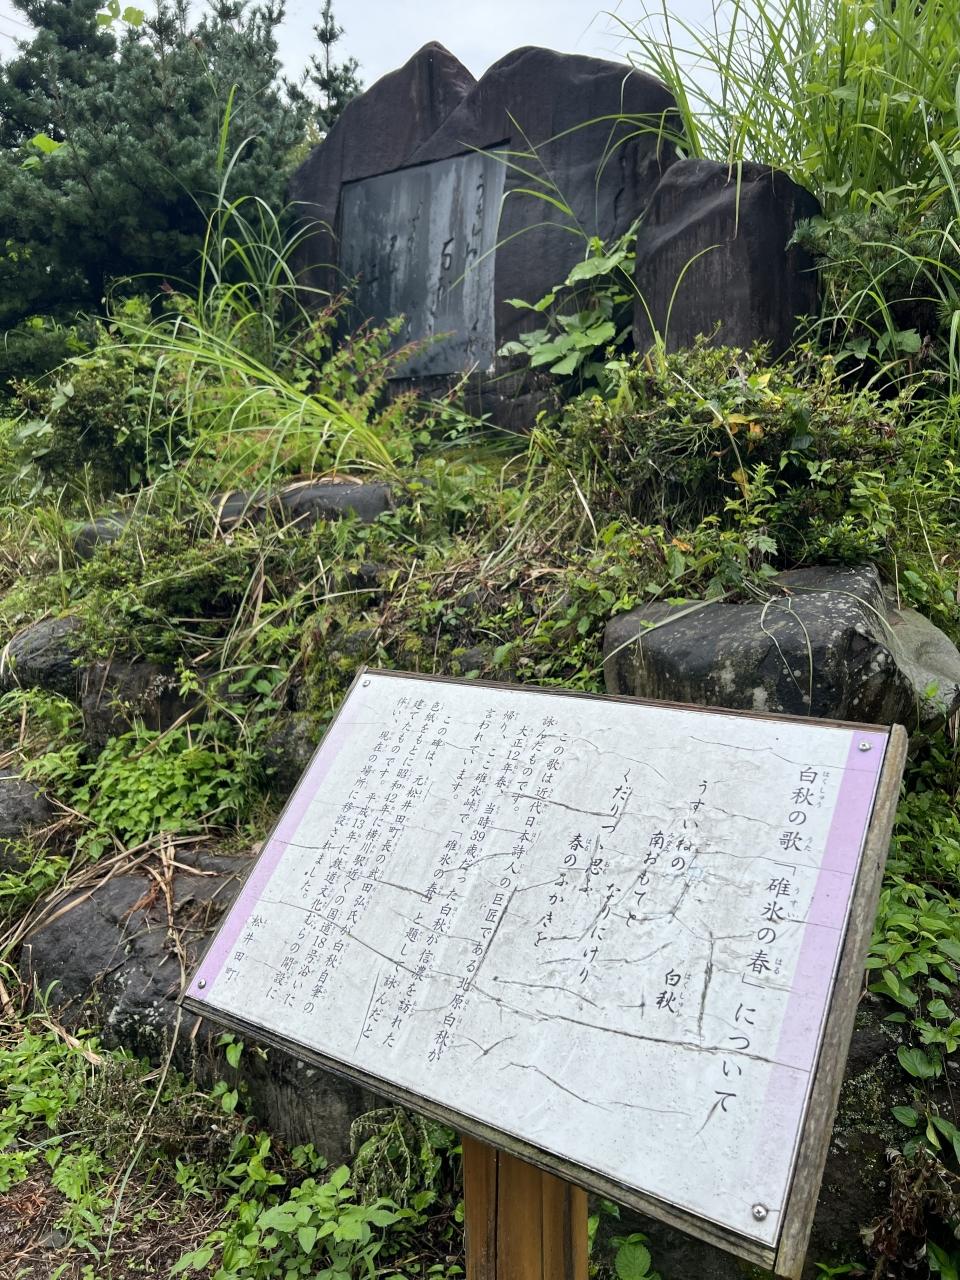 白秋の歌「碓氷の春」について
うすいねの
南おもてと
なりにけり
くだりつゝ思ふ
春のふかきを
白秋
この歌は近代日本詩人の巨匠である北原白秋が
詠んだものです。
大正12年春、当時39歳だった白秋が信濃を訪れた
帰り、ここ碓氷峠で「碓氷の春」と題して詠んだと
言われています。
この碑は、元松井田町長の武田弘氏が白秋自筆の
色紙をもとに昭和42年に横川駅近くの国道18号沿いに
建てたものです。平成13年に鉄道文化むらの開設に
伴い、現在の場所に移設されました。
松井田町